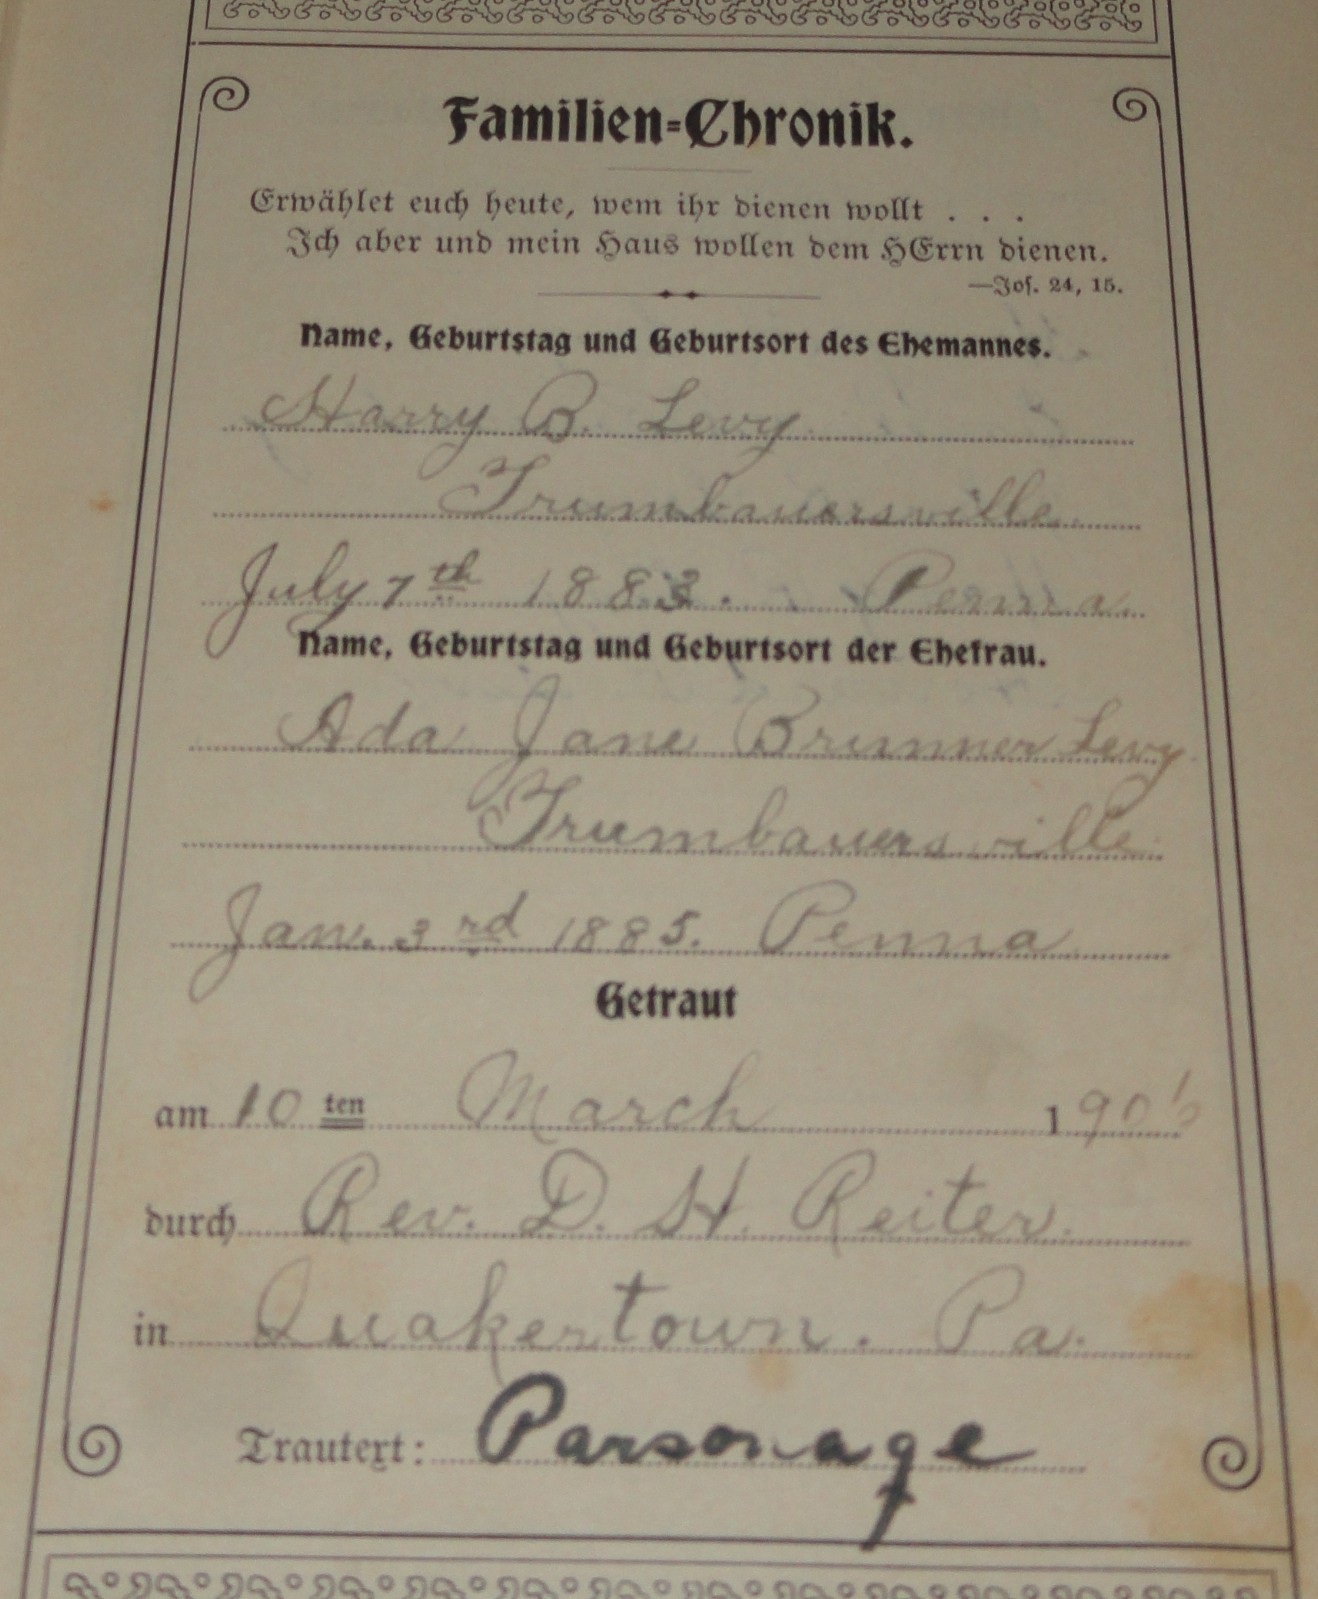 Familien-Chronik.
Erwählet euch heute, wem ihr dienen wollt . . .
Ich aber und mein Haus wollen dem HErrn dienen.
—Jos. 24, 15.
Name, Geburtstag und Geburtsort des Ehemannes.
Harry B. Levy
Trumbauersville
July 7th 1883. Penna.
Name, Geburtstag und Geburtsort der Ehefrau.
Ada Jane Brunner Levy
Trumbauersville
Jan. 3rd 1885. Penna
Getraut
am 10 ten March 1906
durch Rev. D. H. Reiter.
in Quakertown. Pa.
Trautext: Parsonage